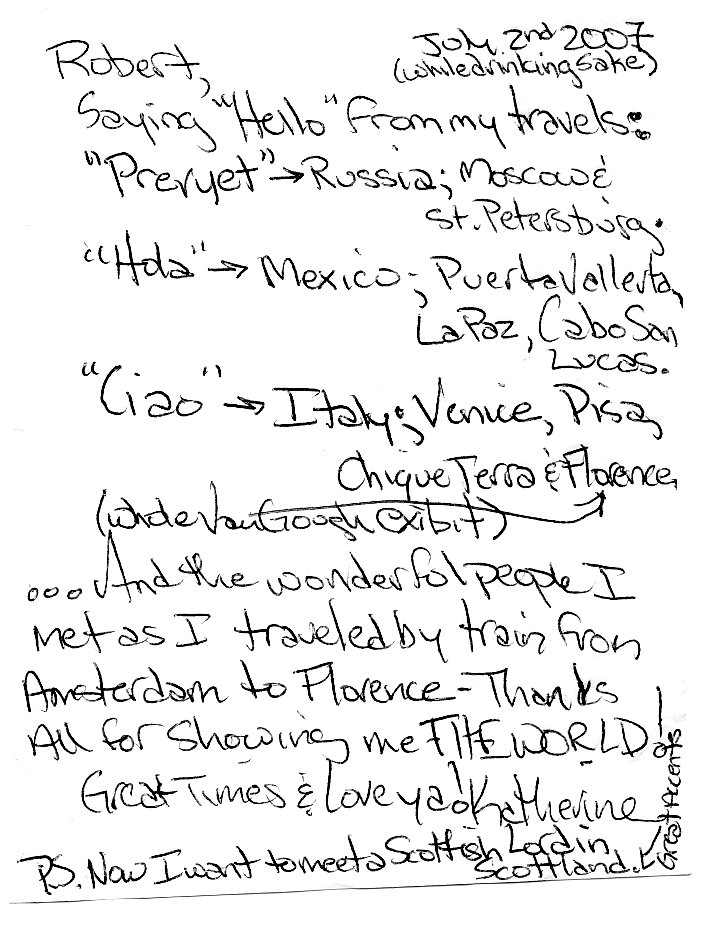 July 2nd 2007
Robert,
(while drinking sake)
Saying "Hello" from my travels:
"Prevyet" → Russia; Moscow &
St. Petersburg.
"Hola" → Mexico; Puerta Vallerta,
La Paz, Cabo San
Lucas.
"Ciao" → Italy; Venice, Pisa,
Chique Terra & Florence,
(whole Van Goough exibit)
...And the wonderful people I
met as I traveled by train from
Amsterdam to Florence - Thanks
All for showing me THE WORLD!
Great Times & Love ya! Katherine
P.S. Now I want to meet a Scottish Lord in
Scottland.
Great Accents